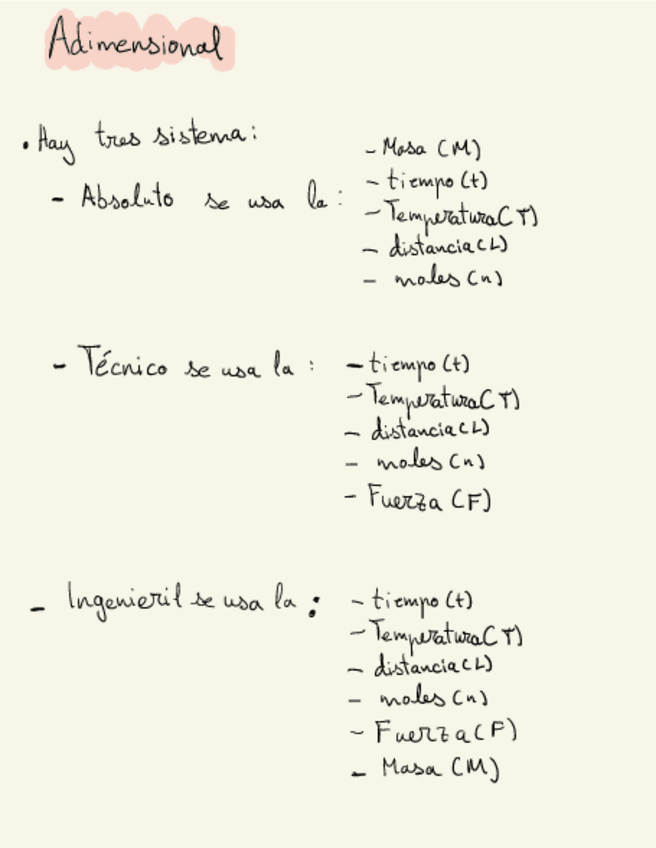 Adimensional
• Hay tres sistema:
- Absoluto se usa la:
- Masa (M)
- tiempo (t)
- Temperatura (T)
- distancia (L)
- moles (n)
- Técnico se usa la :
- tiempo (t)
- Temperatura (T)
- distancia (L)
- moles (n)
- Fuerza (F)
- Ingenieril se usa la :
- tiempo (t)
- Temperatura (T)
- distancia (L)
- moles (n)
- Fuerza (F)
- Masa (M)